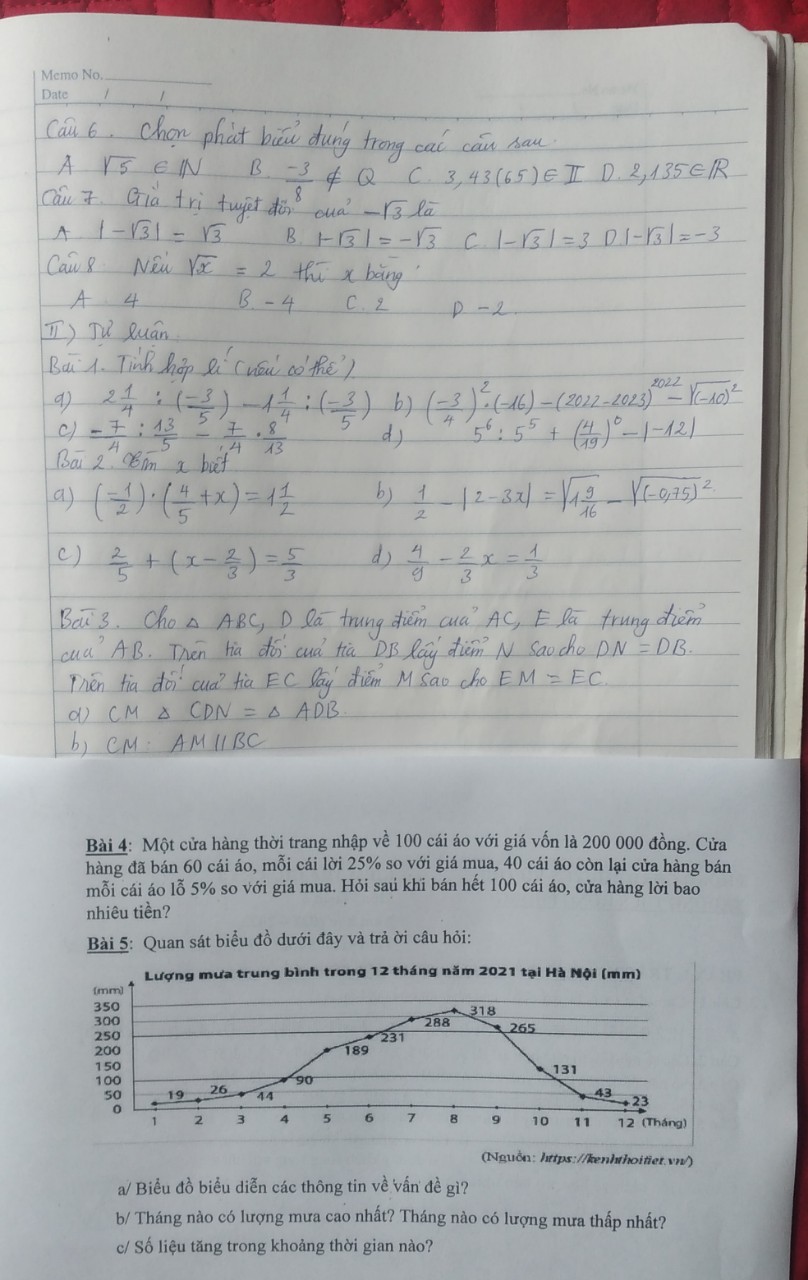 Memo No.
Date / /
Câu 6. Chọn phát biểu đúng trong các câu sau.
A √5 ∈ N B. -3/8 ∉ Q C. 3,43(65) ∈ II D. 2,135 ∈ R
Câu 7. Giá trị tuyệt đối của -√3 là
A |-√3| = √3 B. |-√3| = -√3 C. |-√3| = 3 D |-√3| = -3
Câu 8 Nếu √x = 2 thì x bằng
A. 4 B. -4 C. 2 D -2
II) Tự luận
Bài 1. Tính hợp lí (nếu có thể)
a) 2 1/4 : (-3/5) - 1 1/4 : (-3/5) b) (-3/4)² · (-16) - (2022-2023)²⁰²² - √(-10)²
c) -7/4 : 13/5 - 7/4 · 8/13 d) 5⁶ : 5⁵ + (4/19)⁰ - |-12|
Bài 2. Tìm x biết
a) (-1/2) · (4/5 + x) = 1 1/2 b) 1/2 - |2-3x| = √1 9/16 - √(-0,75)²
c) 2/5 + (x - 2/3) = 5/3 d) 4/9 - 2/3 x = 1/3
Bài 3. Cho △ ABC, D là trung điểm của AC, E là trung điểm
của AB. Trên tia đối của tia DB lấy điểm N sao cho DN = DB.
Trên tia đối của tia EC lấy điểm M sao cho EM = EC.
a) CM △ CDN = △ ADB.
b) CM: AM // BC
Bài 4: Một cửa hàng thời trang nhập về 100 cái áo với giá vốn là 200 000 đồng. Cửa
hàng đã bán 60 cái áo, mỗi cái lời 25% so với giá mua, 40 cái áo còn lại cửa hàng bán
mỗi cái áo lỗ 5% so với giá mua. Hỏi sau khi bán hết 100 cái áo, cửa hàng lời bao
nhiêu tiền?
Bài 5: Quan sát biểu đồ dưới đây và trả ời câu hỏi:
Lượng mưa trung bình trong 12 tháng năm 2021 tại Hà Nội (mm)
(mm)
350
300
250
200
150
100
50
0
19 26 44 90 189 231 288 318 265 131 43 23
1 2 3 4 5 6 7 8 9 10 11 12 (Tháng)
(Nguồn: https://kenhthoitiet.vn/)
a/ Biểu đồ biểu diễn các thông tin về vấn đề gì?
b/ Tháng nào có lượng mưa cao nhất? Tháng nào có lượng mưa thấp nhất?
c/ Số liệu tăng trong khoảng thời gian nào?